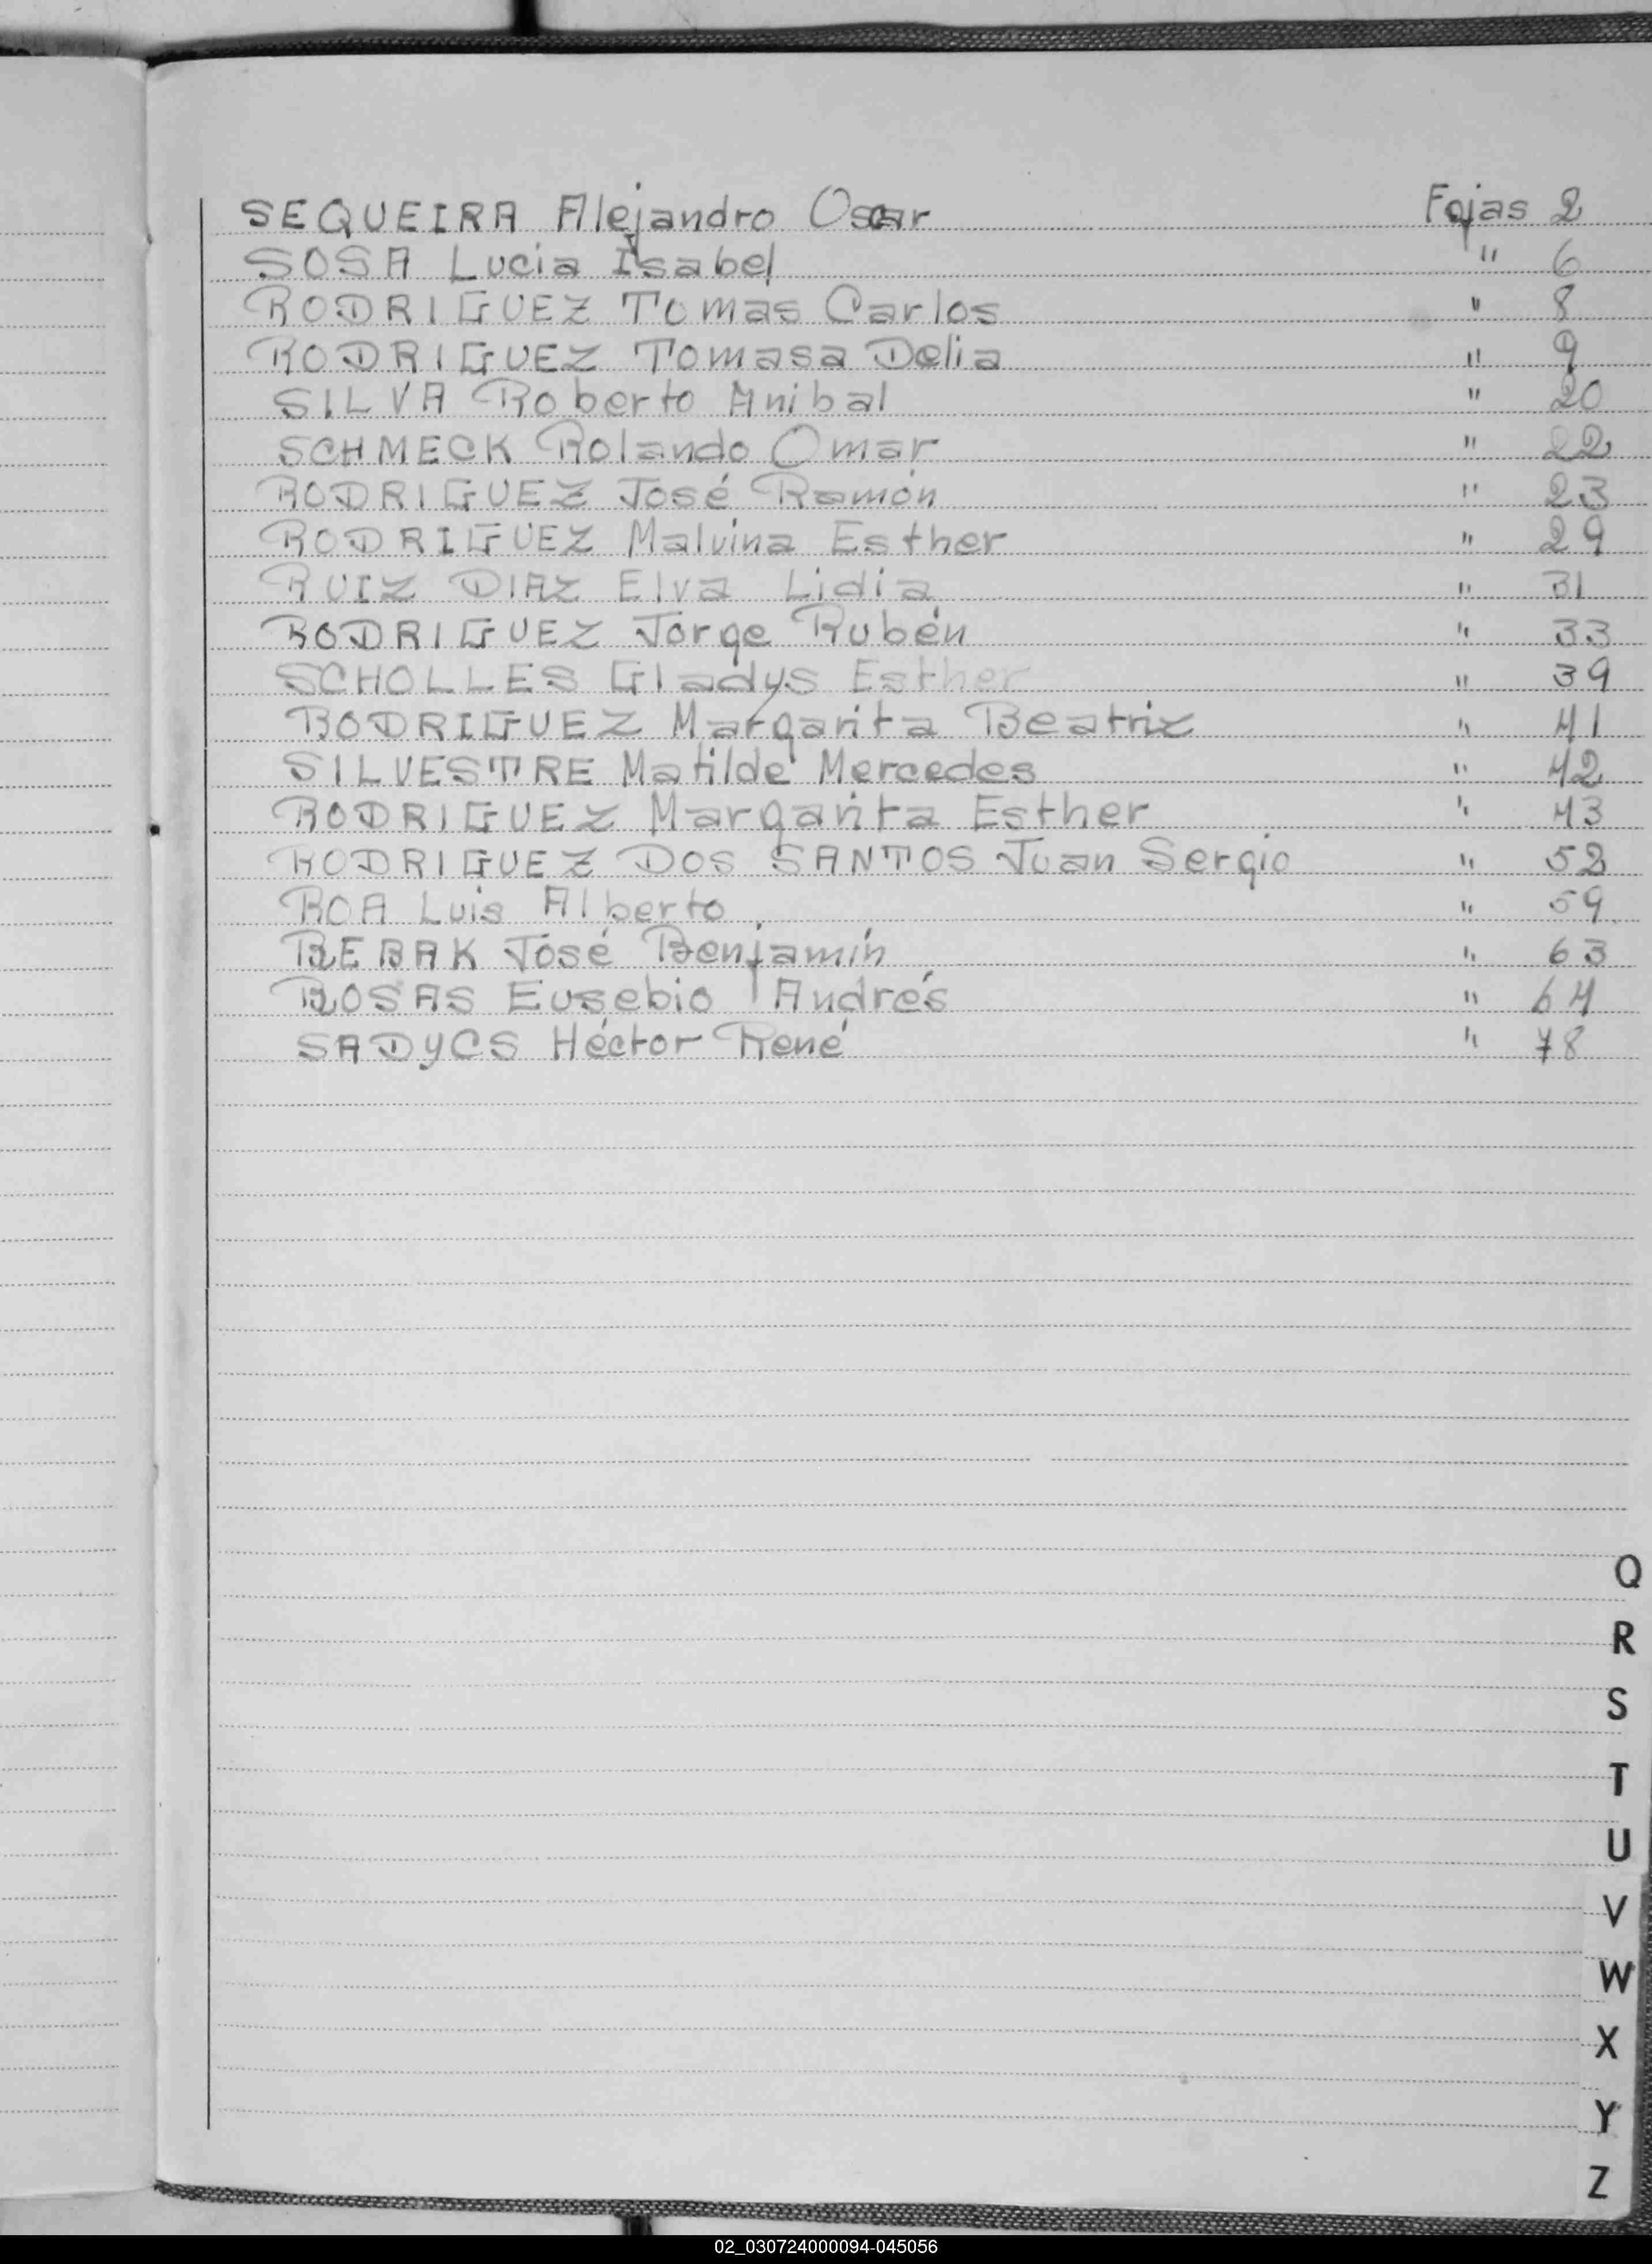 SEQUEIRA Alejandro Oscar Fojas 2
SOSA Lucia Isabel " 6
RODRIGUEZ Tomás Carlos " 8
RODRIGUEZ Tomasa Delia " 9
SILVA Roberto Anibal " 20
SCHMECK Rolando Omar " 22
RODRIGUEZ José Ramón " 23
RODRIGUEZ Malvina Esther " 29
RUIZ DIAZ Elva Lidia " 31
RODRIGUEZ Jorge Rubén " 33
SCHOLLES Gladys Esther " 39
RODRIGUEZ Margarita Beatriz " 41
SILVESTRE Matilde Mercedes " 42
RODRIGUEZ Margarita Esther " 43
RODRIGUEZ DOS SANTOS Juan Sergio " 52
ROA Luis Alberto " 59
REBAK José Benjamín " 63
ROSAS Eusebio Andrés " 64
SADYCS Héctor René " 78
Q
R
S
T
U
V
W
X
Y
Z
02_030724000094-045056